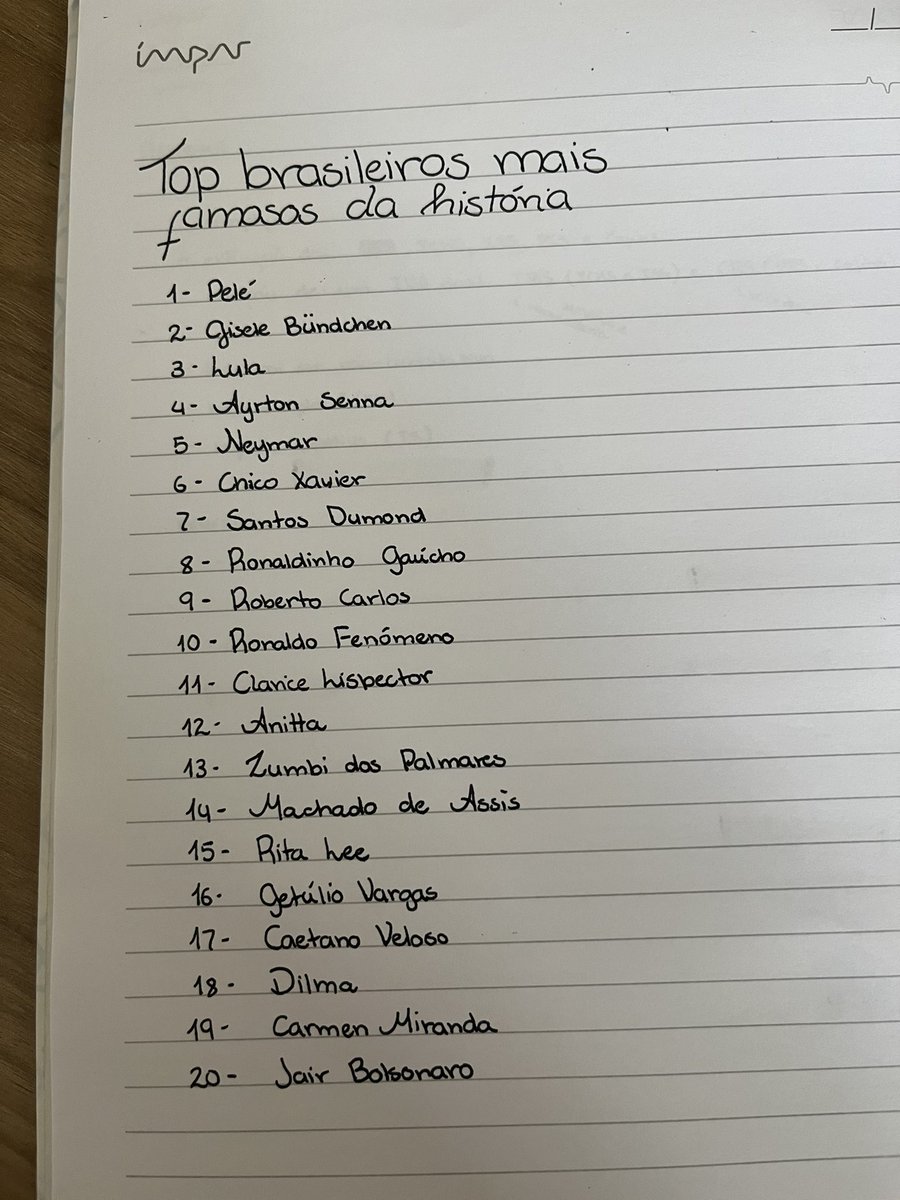 impr
Top brasileiros mais
famosos da história
1- Pelé
2- Gisele Bündchen
3- Lula
4- Ayrton Senna
5- Neymar
6- Chico Xavier
7- Santos Dumond
8- Ronaldinho Gaúcho
9- Roberto Carlos
10- Ronaldo Fenómeno
11- Clarice Lispector
12- Anitta
13- Zumbi dos Palmares
14- Machado de Assis
15- Rita Lee
16- Getúlio Vargas
17- Caetano Veloso
18- Dilma
19- Carmen Miranda
20- Jair Bolsonaro